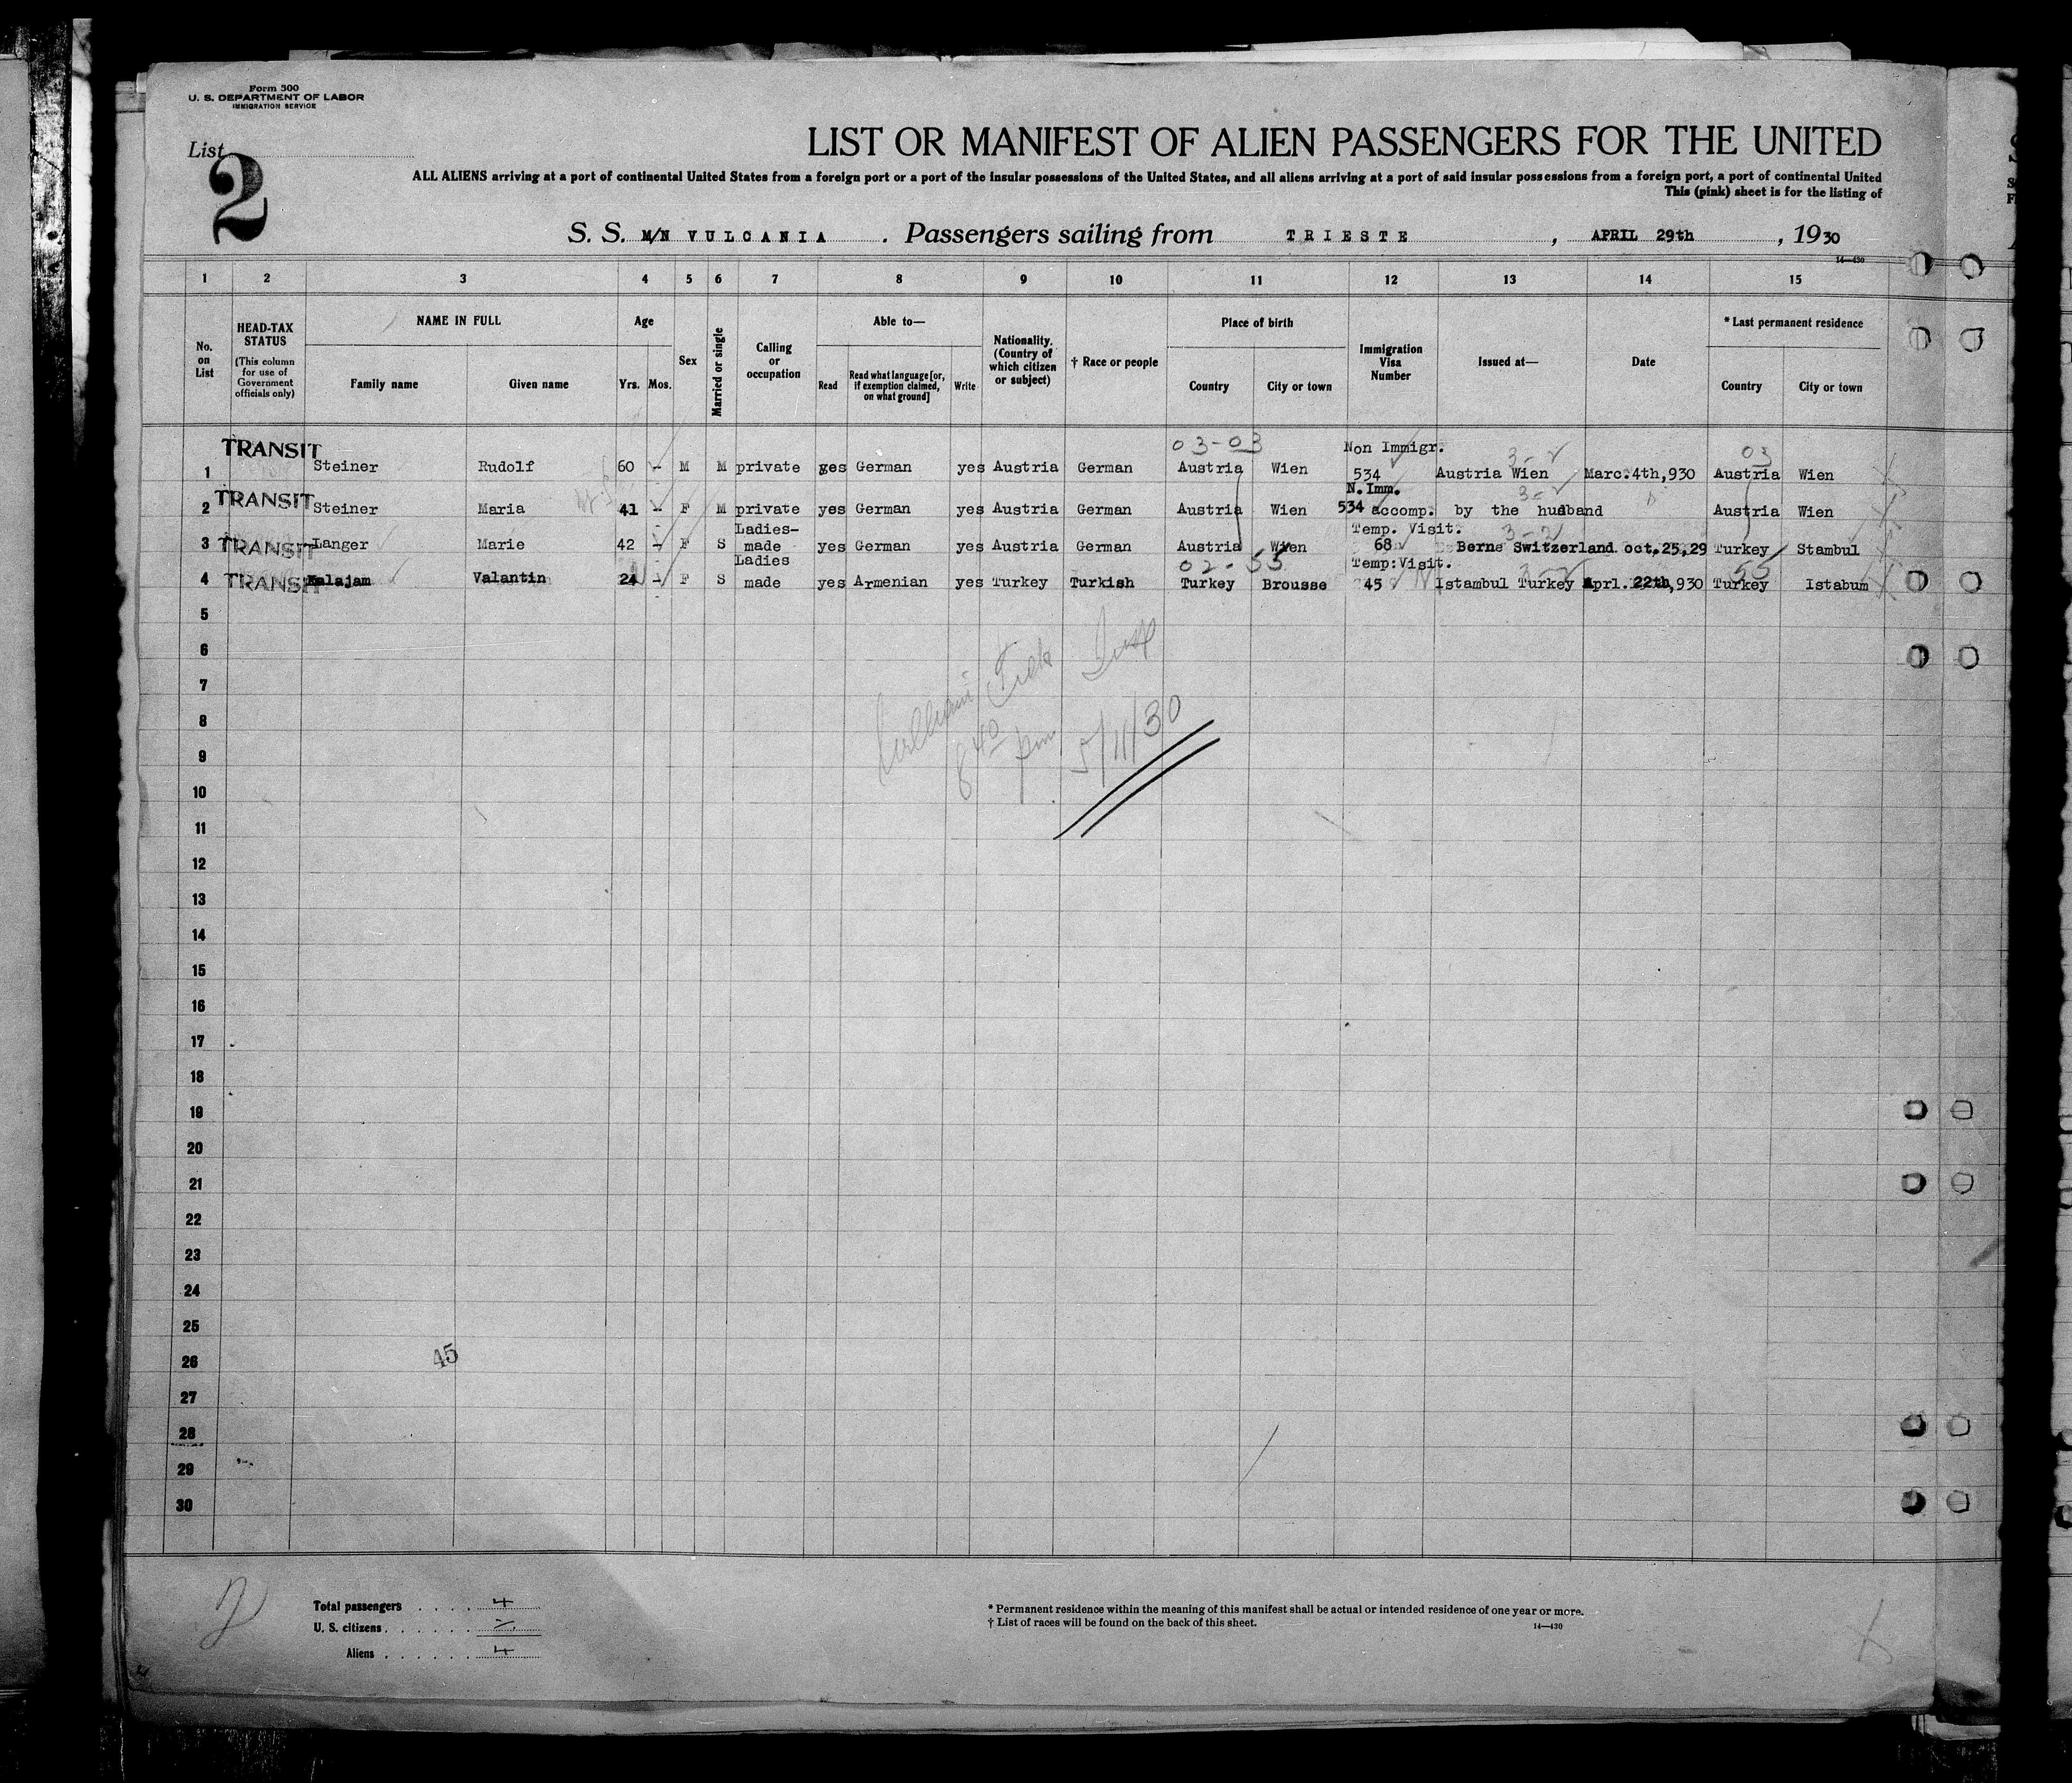 Form 500
U. S. DEPARTMENT OF LABOR
IMMIGRATION SERVICE
List
2
LIST OR MANIFEST OF ALIEN PASSENGERS FOR THE UNITED
ALL ALIENS arriving at a port of continental United States from a foreign port or a port of the insular possessions of the United States, and all aliens arriving at a port of said insular possessions from a foreign port, a port of continental United
This (pink) sheet is for the listing of
S. S. M/N VULCANIA. Passengers sailing from TRIESTE, APRIL 29th, 1930
14—430
1 2 3 4 5 6 7 8 9 10 11 12 13 14 15
No. on List
HEAD-TAX STATUS
(This column for use of Government officials only)
NAME IN FULL
Family name
Given name
Age
Yrs.
Mos.
Sex
Married or single
Calling or occupation
Able to—
Read
Read what language [or, if exemption claimed, on what ground]
Write
Nationality. (Country of which citizen or subject)
† Race or people
Place of birth
Country
City or town
Immigration Visa Number
Issued at—
Date
* Last permanent residence
Country
City or town
03-03
Non Immigr.
3-2
03
1 TRANSIT Steiner Rudolf 60 - M M private yes German yes Austria German Austria Wien 534 Austria Wien Marc.4th,930 Austria Wien
N.Imm.
3-2
2 TRANSIT Steiner Maria 41 - F M private yes German yes Austria German Austria Wien 534 accomp. by the hudband Austria Wien
Ladies- Temp. Visit.
3-2
3 TRANSIT Langer Marie 42 - F S made yes German yes Austria German Austria Wien 68 Berne Switzerland oct,25,29 Turkey Stambul
Ladies 02-55 Temp:Visit.
3-2 55
4 TRANSIT Kalajam Valantin 24 - F S made yes Armenian yes Turkey Turkish Turkey Brousse 45 Istambul Turkey Aprl.22th,930 Turkey Istabum
5
6
7
8
9
10
11
12
13
14
15
16
17
18
19
20
21
22
23
24
25
26
27
28
29
30
William Insp
8 40 pm 5/11/30
45
2
Total passengers 4
U. S. citizens
Aliens 4
* Permanent residence within the meaning of this manifest shall be actual or intended residence of one year or more.
† List of races will be found on the back of this sheet.
14—430